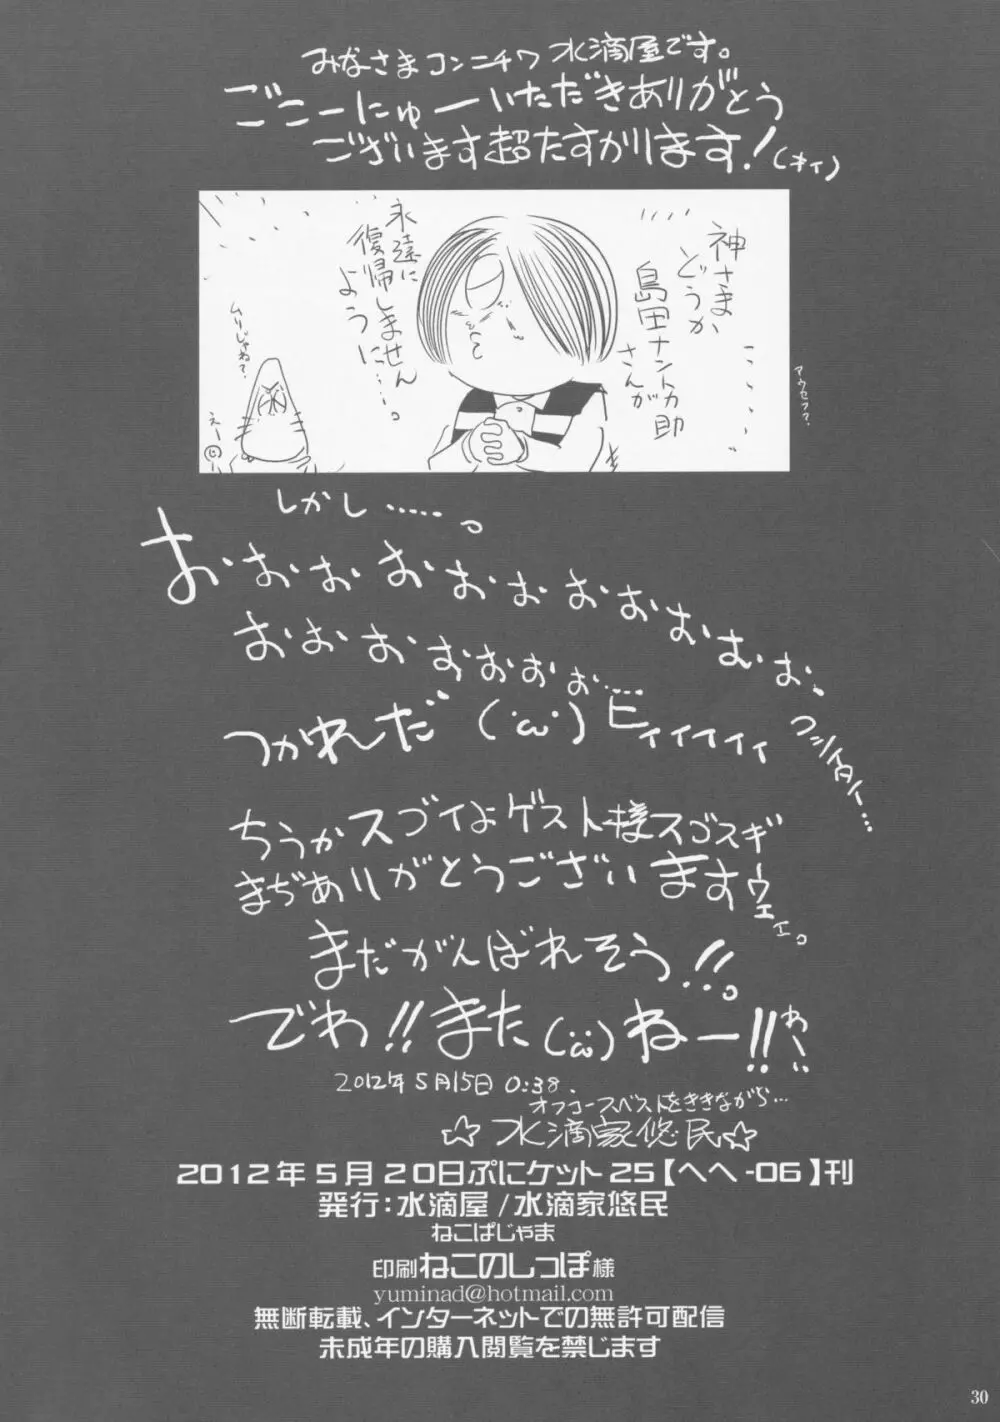 みなさまコンニチワ 水滴屋です。
ごこーにゅーいただきありがとう
ございます超たすかります!(オイ)
神さま
どうか
島田ナントカ助
さんが
永遠に
復帰しません
ように…。
ムリじゃね?
えー
しかし……。
おおおおおおおおおおおお。
おおおおおおお……
つかれだ (・ω・) ヒィィィィィ
ちうかスゴイよゲスト様スゴスギ
まぢありがとうございますーウェェ。
まだがんばれそう!!。
でわ!!また(・ω・)ねー!!
わーい
2012年5月15日 0:38.
オフコースベストをききながら…
☆水滴家悠民☆
2012年5月20日ぷにケット25【へへ-06】刊
発行:水滴屋/水滴家悠民
ねこぱじゃま
印刷ねこのしっぽ様
yuminad@hotmail.com
無断転載、インターネットでの無許可配信
未成年の購入閲覧を禁じます
30